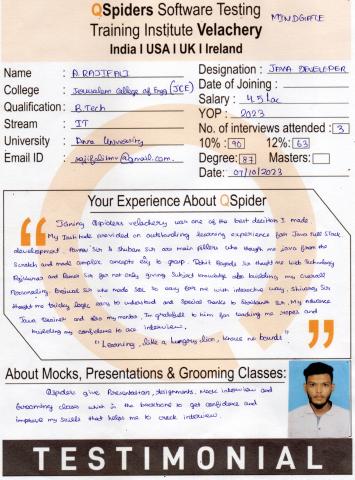 QSpiders Software Testing
Training Institute Velachery
MINDGATE
India I USA I UK I Ireland
Name : A. RAJIFALI
Designation : JAVA DEVELOPER
Date of Joining :
College : Jerusalem College of Engg (JCE)
Salary : 4.5 Lac
Qualification : B.Tech
YOP : 2023
Stream : IT
No. of interviews attended : 3
University : Anna University
10% : 90 12% : 63
Email ID :
Degree: 87 Masters:
Date: 07/10/2023
Your Experience About QSpider
Joining QSpiders velachery was one of the best decision I made
My Institute provided an outstanding learning experience for Java Full Stack
development. Sir & Sir are main pillers who though me Java from the
Scratch and made complex concepts easy to grasp. Rohit Sir thought me Web Technology
and Sir for not only giving Subject knowledge also building my overall
Personality. Sir who made SQL so easy for me with interactive way, Sir
thought me tricky logic easy to understand and Special thanks to Sir, My advance
Java trainer and also my mentor. I'm gratefull to him for leading me
building my confidence to ace interview.
"Learning, like a hungry lion, knows no bounds"
About Mocks, Presentations & Grooming Classes:
QSpiders give Presentation, Assignments, Mock interview and
Grooming class which is the backbone to get confidence and
improve my skills that helps me to crack interview.
TESTIMONIAL